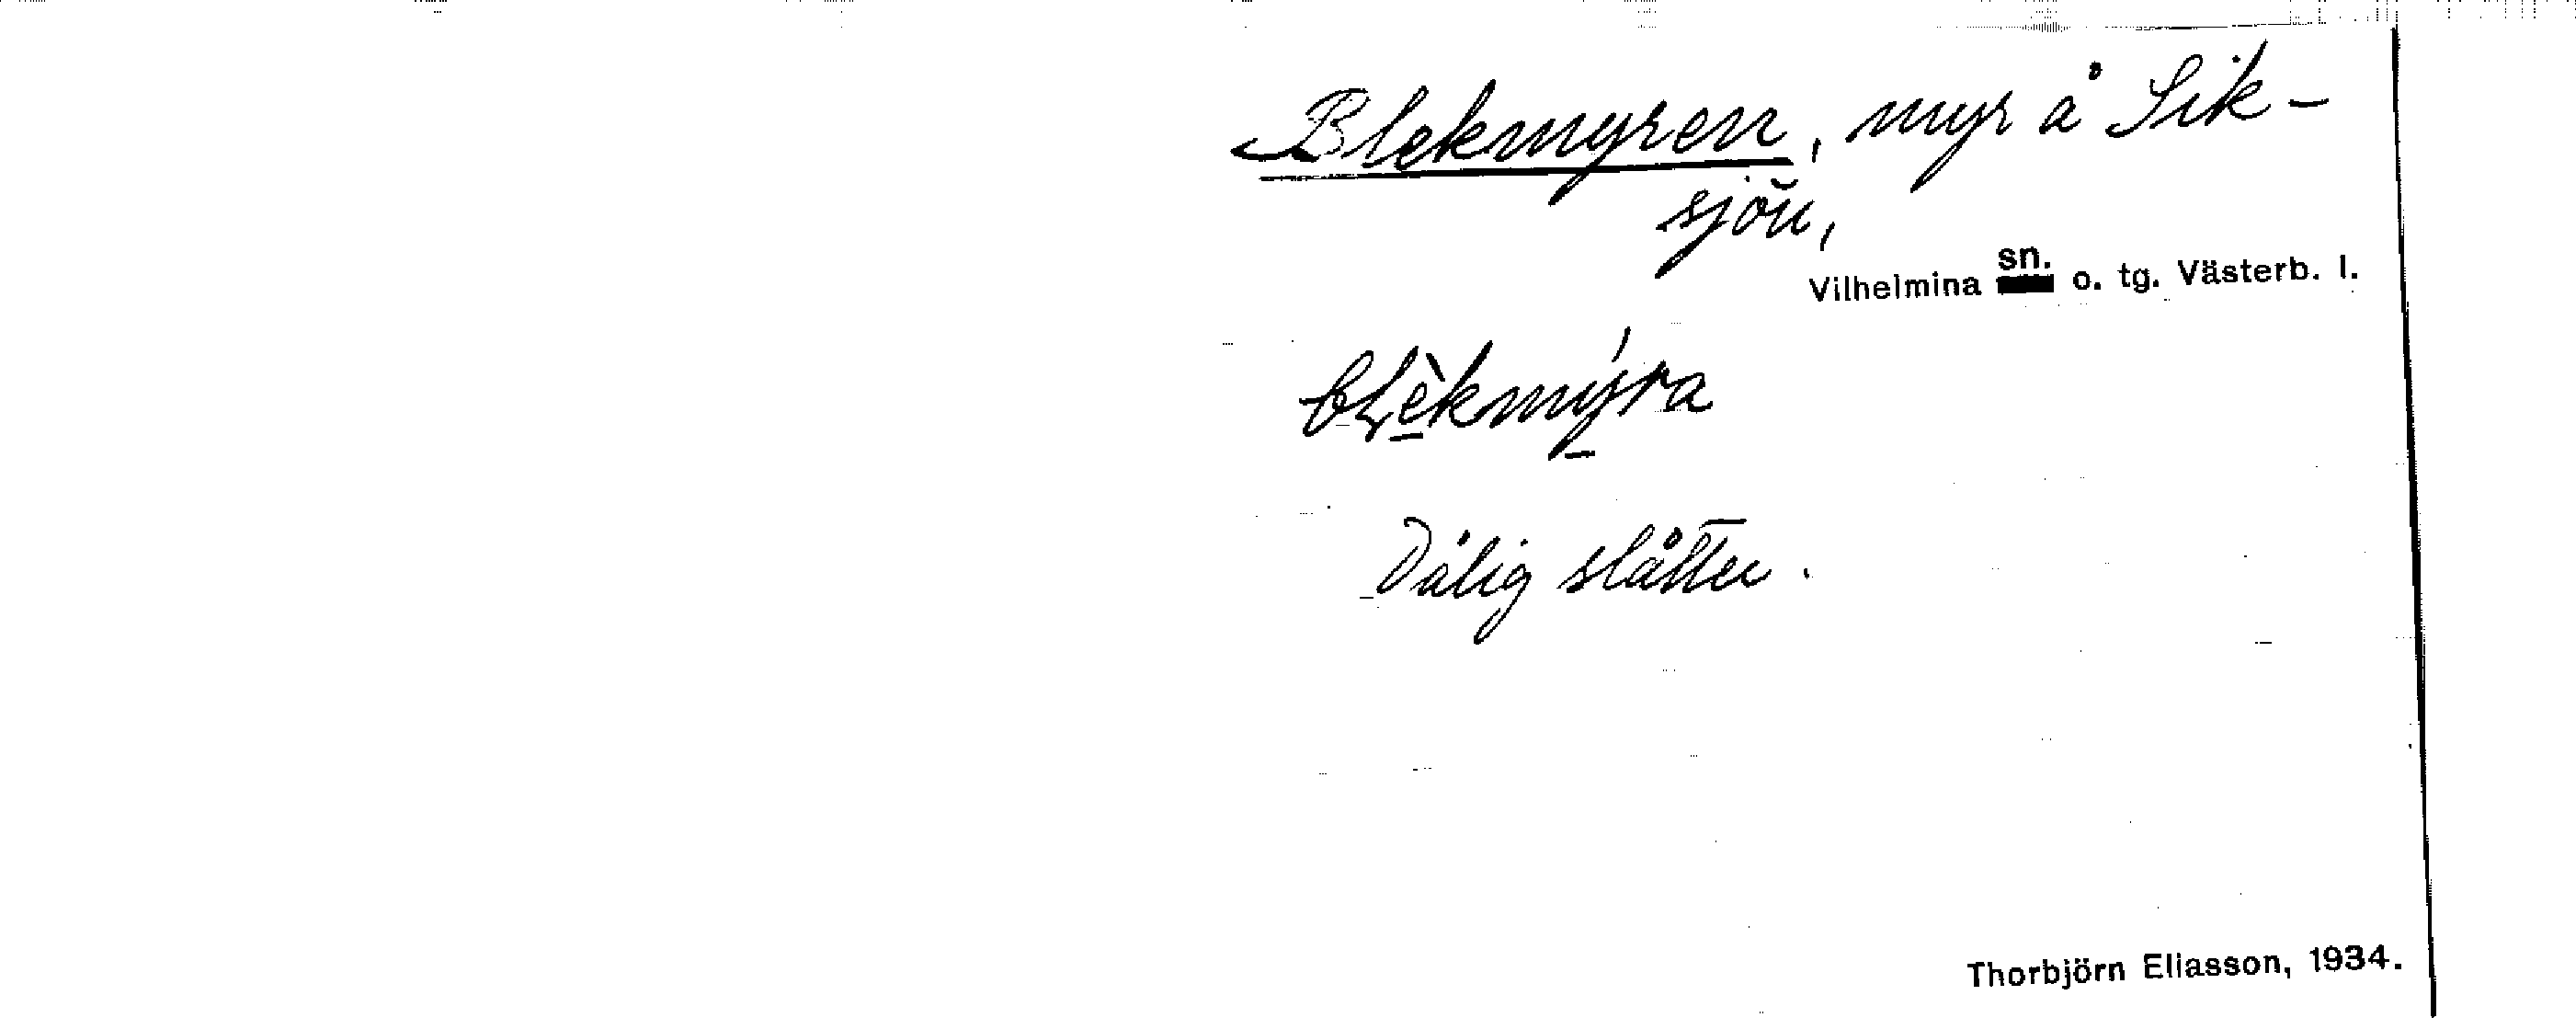 Blekmyren, myr å Sik-
sjön,
Vilhelmina sn. o. tg. Västerb. l.
bLèkmýra
Dålig slåtter.
Thorbjörn Eliasson, 1934.